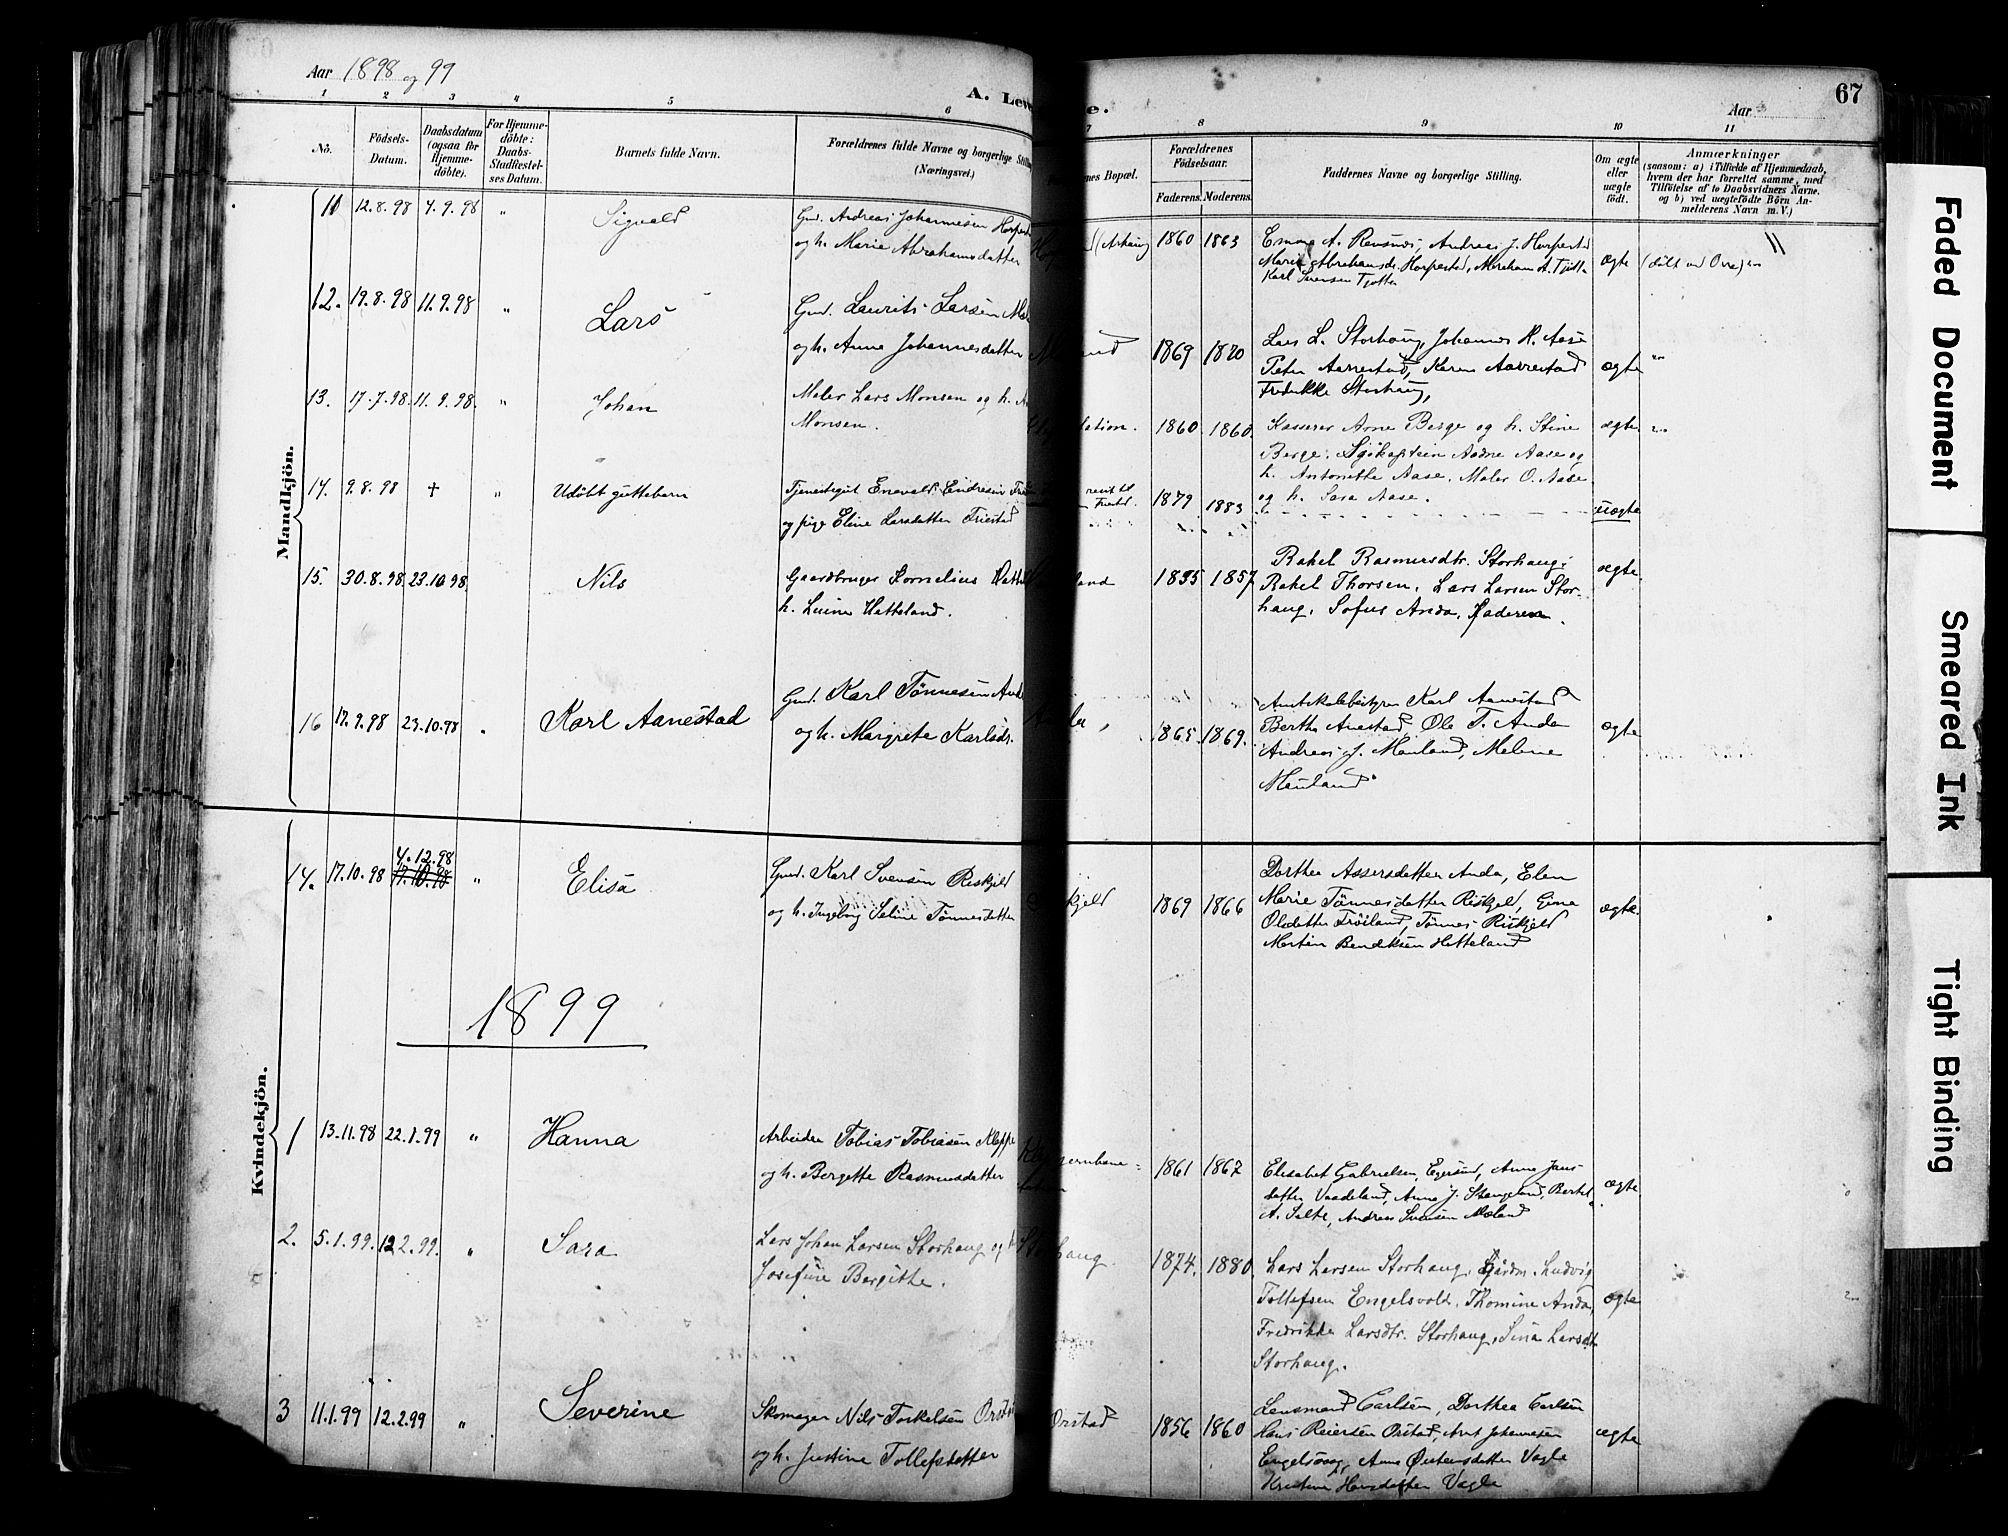 Aar 1898 og 99
A. Lev
e.
Aar
67
1 2 3 4 5 6 7 8 9 10 11
No.
Födsels-
Datum.
Daabsdatum
(ogsaa for
Hjemme-
döbte).
For Hjemme-
döbte:
Daabs-
Stadfestel-
ses Datum.
Barnets fulde Navn.
Forældrenes fulde Navne og borgerlige Stilling
(Næringsvei.)
nes Bopæl.
Forældrenes
Födselsaar.
Faderens. Moderens.
Faddernes Navne og borgerlige Stilling.
Om ægte
eller
uægte
født.
Anmærkninger
(saasom: a) i Tilfælde af Hjemmedaab,
hvem der har forrettet samme, med
Tilföielse af to Daabsvidners Navne.
og b) ved uægtefödte Börn An-
melderens Navn m. V.)
Mandkjön.
11 12.8.98 4.9.98 " Sigvald
Gmd. Andreas Johannesen
og h. Marie Abrahamsdatter
1860 1863
Emma A. Revsnes, Andreas J. Horpestad
Marie Abrahamsdr. Horpestad, Abraham A. Tjøtta
Karl Sørensen Tjøtta
ægte
12. 19.8.98 11.9.98 " Lars
Gmd. Laurits Larsen
og h. Anna Johannesdatter
1869 1870
Lars L. Storhaug, Johannes H. Aase
Peter Aarrestad, Karen Aarrestad
Fredrikke Storhaug,
ægte "
13. 17.7.98. 11.9.98. " Johan
Maler Lars Monsen og h.
Monsen.
station. 1860. 1860.
Kasserer Arne Berge og h. Stine
Berge. Sjökaptein Aadne Aase og
h. Antonette Aase. Maler O. Aase
og h. Sara Aase.
ægte "
14. 9.8.98 † " Udöbt guttebarn
Tjenestegut Enevald Endresen
og pige Eline Larsdatter Friestad
1879 1883
uægte
15. 30.8.98. 23.10.98. Nils
Gaardbruger Kornelius
h. Luine Hatteland.
land 1855 1857
Rakel Rasmusdtr. Storhaug,
Rakel Thorsen, Lars Larsen Stor-
haug, Sofus Anda, Faderen.
ægte.
16 17.9.98 23.10.98 " Karl Aanestad
Gmd. Karl Tönnesen
og h. Margrete Karlsdr.
1865. 1869.
Amtskolebestyrer Karl Aanestad
Bertha Anestad, Ole T. Anda
Andreas J. Mauland, Malene
Mauland
ægte
Kvindekjön.
14. 17.10.98 4.12.98
17.10.98 " Elisa
Gmd. Karl Svensen Riskjeld
og h. Ingeborg Seline Tönnesdatter
kjeld 1869 1866
Dorthea Assersdatter Anda, Elen
Marie Tönnesdatter Riskjeld, Gina
Olsdatter Fröiland, Tönnes Riskjeld
Martin Bendiksen Hatteland
ægte.
1899
1 13.11.98 22.1.99 " Hanna
Arbeider Tobias Tobiasen Kleppe
og h. Bergette Rasmusdatter
1861 1862
Elisabet Gabrielsen, Egersund, Anna Jans-
datter Vaadeland, Anna J. Stangeland, Bertel
A. Salte, Andreas Svensen Mæland
ægte
2. 5.1.99. 12.2.99. " Sara
Lars Johan Larsen Storhaug og h.
Josefine Bergithe.
haug. 1874. 1880.
Lars Larsen Storhaug, Ludvig
Tollefsen Engelsvold, Thomine Anda,
Fredrikke Larsdtr. Storhaug, Sina Larsdtr
Storhaug.
ægte
3 11.1.99 12.2.99 " Severine
Skomager Nils Torkelsen
og h. Justine Tollefsdatter
Orstad 1856 1860
Lensmand Carlsen, Dorthea Carlsen
Hans Reiersen Orstad, Arnt Johannesen
Engelsvaag, Anna Östensdatter Vagle
Kristine Hansdatter Vagle
ægte
Faded Document
Smeared Ink
Tight Binding